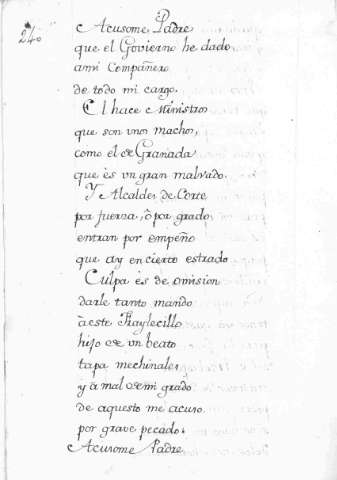 240
Acusome Padre
que el Govierno he dado
ami Compañero
de todo mi cargo.
El hace Ministros
que son unos machos,
como el de Granada
que ès un gran malvado.
Y Alcaldes de Corte
por fuerza, ò por grado
entran por empeño
que ay en cierto estrado
Culpa ès de omision
darle tanto mando
à este fraylecillo
hijo de un beato
tapa mechinales
y à mal de mi grado
de aquesto me acuso
por grave pecado.
Acusome Padre